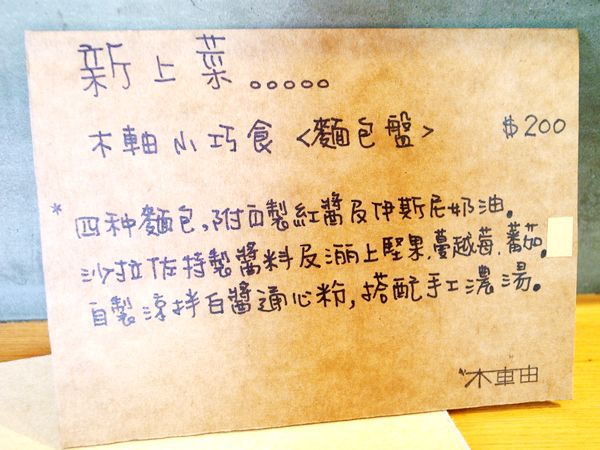 新上菜.....
木軸小巧食<麵包盤> $200
*四种麵包,附自製紅醬及伊斯尼奶油。
沙拉佐特製醬料及洒上堅果,蔓越莓,蕃茄。
自製涼拌白醬通心粉,搭配手工濃湯。
木車由